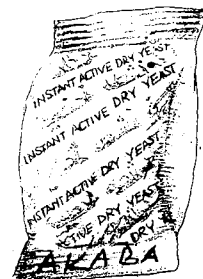 INSTANT ACTIVE DRY YEAST
INSTANT ACTIVE DRY YEAST
INSTANT ACTIVE DRY YEAST
INSTANT ACTIVE DRY YEAST
ACTIVE DRY YEAST
DRY
AKABA